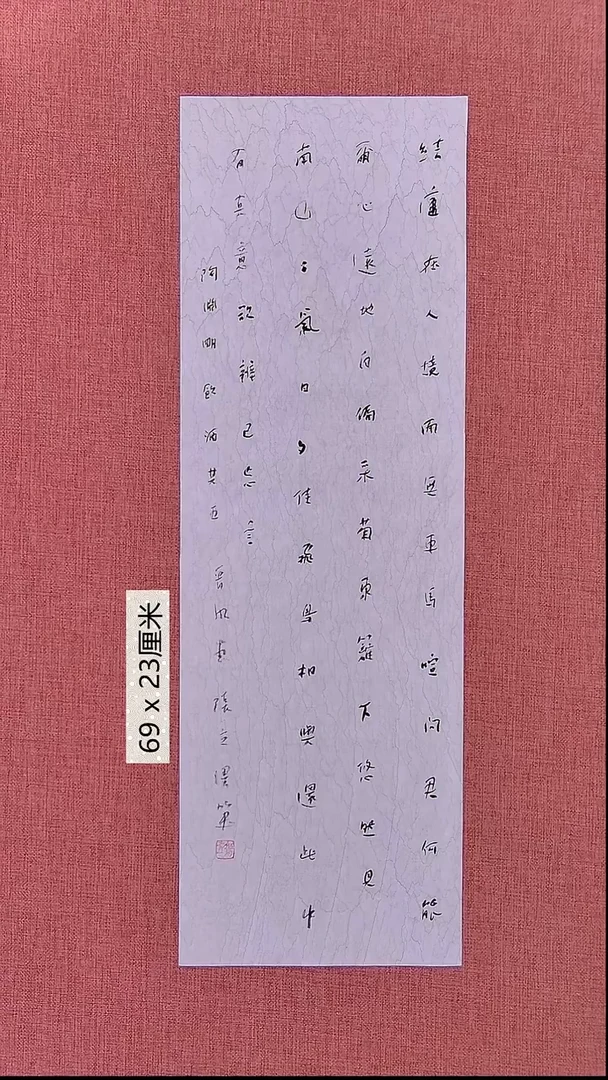 結廬在人境而無車馬喧問君何能
爾心遠地自偏采菊東籬下悠然見
南山〻氣日夕佳飛鳥相與還此中
有真意欲辨已忘言
陶淵明飲酒其五 張立 筆
69 x 23厘米